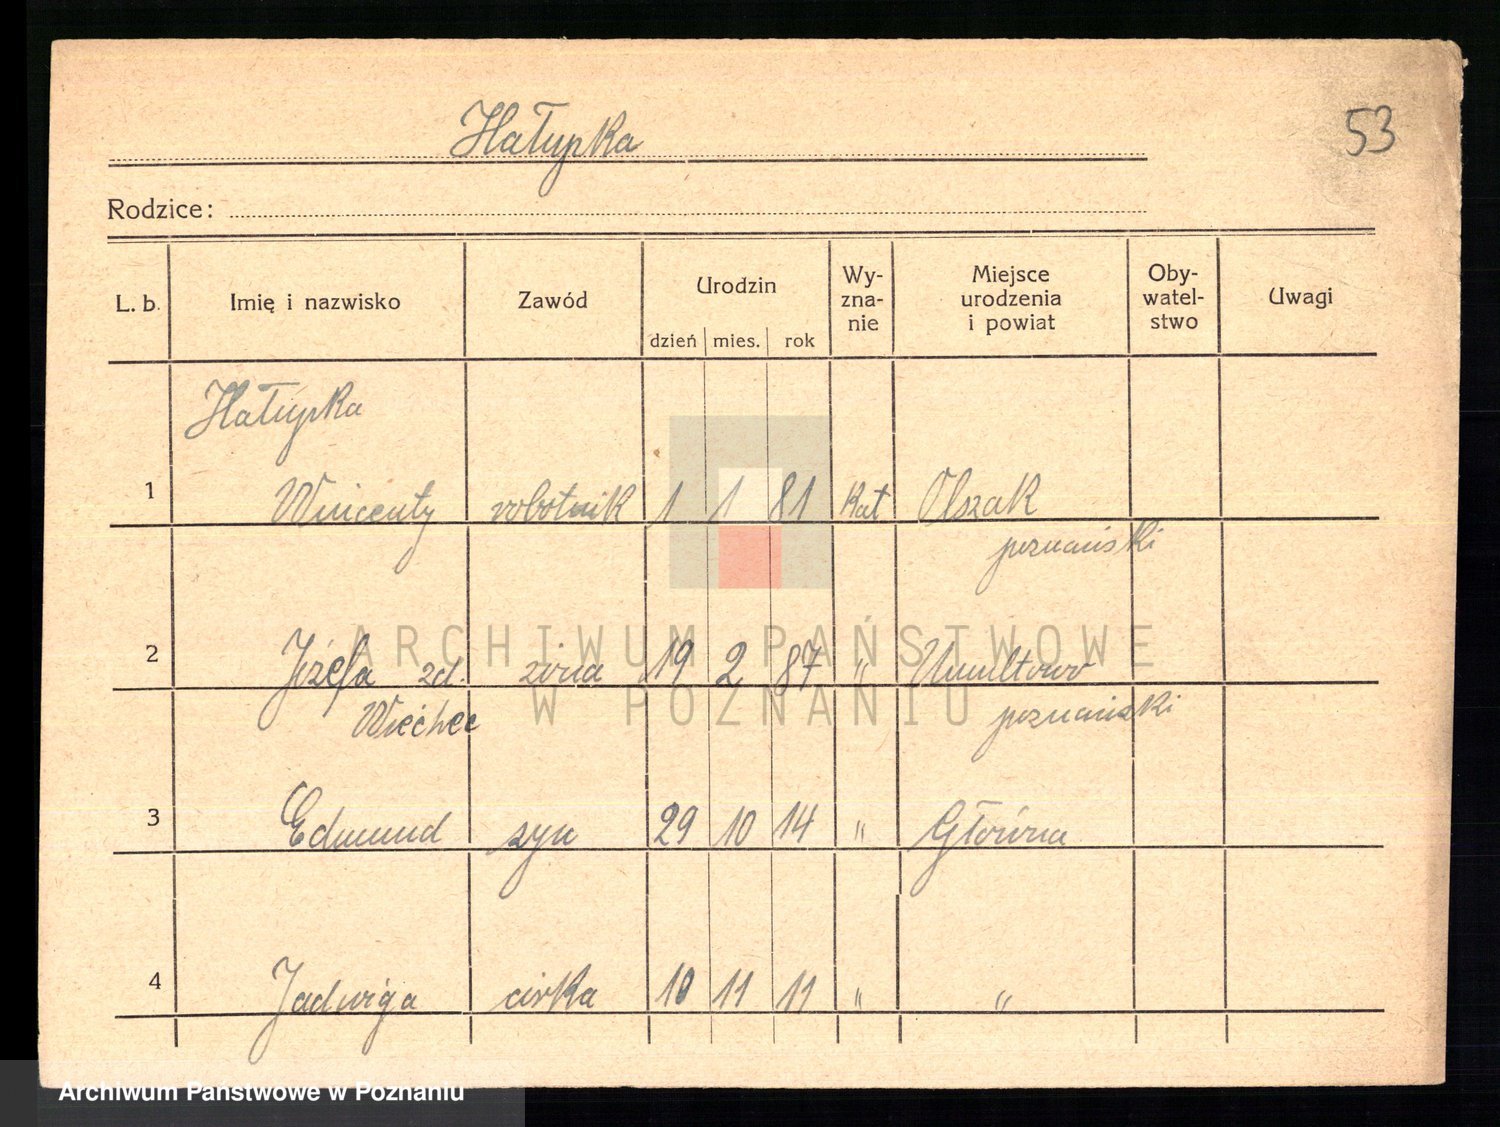 Hałupka
53
Rodzice:
L. b. Imię i nazwisko Zawód Urodzin Wy-zna-nie Miejsce urodzenia i powiat Oby-watel-stwo Uwagi
dzień mies. rok
Hałupka
1 Wincenty robotnik 1 1 81 Kat Olszak
poznański
2 Józefa zd. żona 19 2 87 " Umultowo
Wiechec poznański
3 Edmund syn 29 10 14 " Główna
4 Jadwiga córka 10 11 11 " "
ARCHIWUM PAŃSTWOWE
W POZNANIU
Archiwum Państwowe w Poznaniu